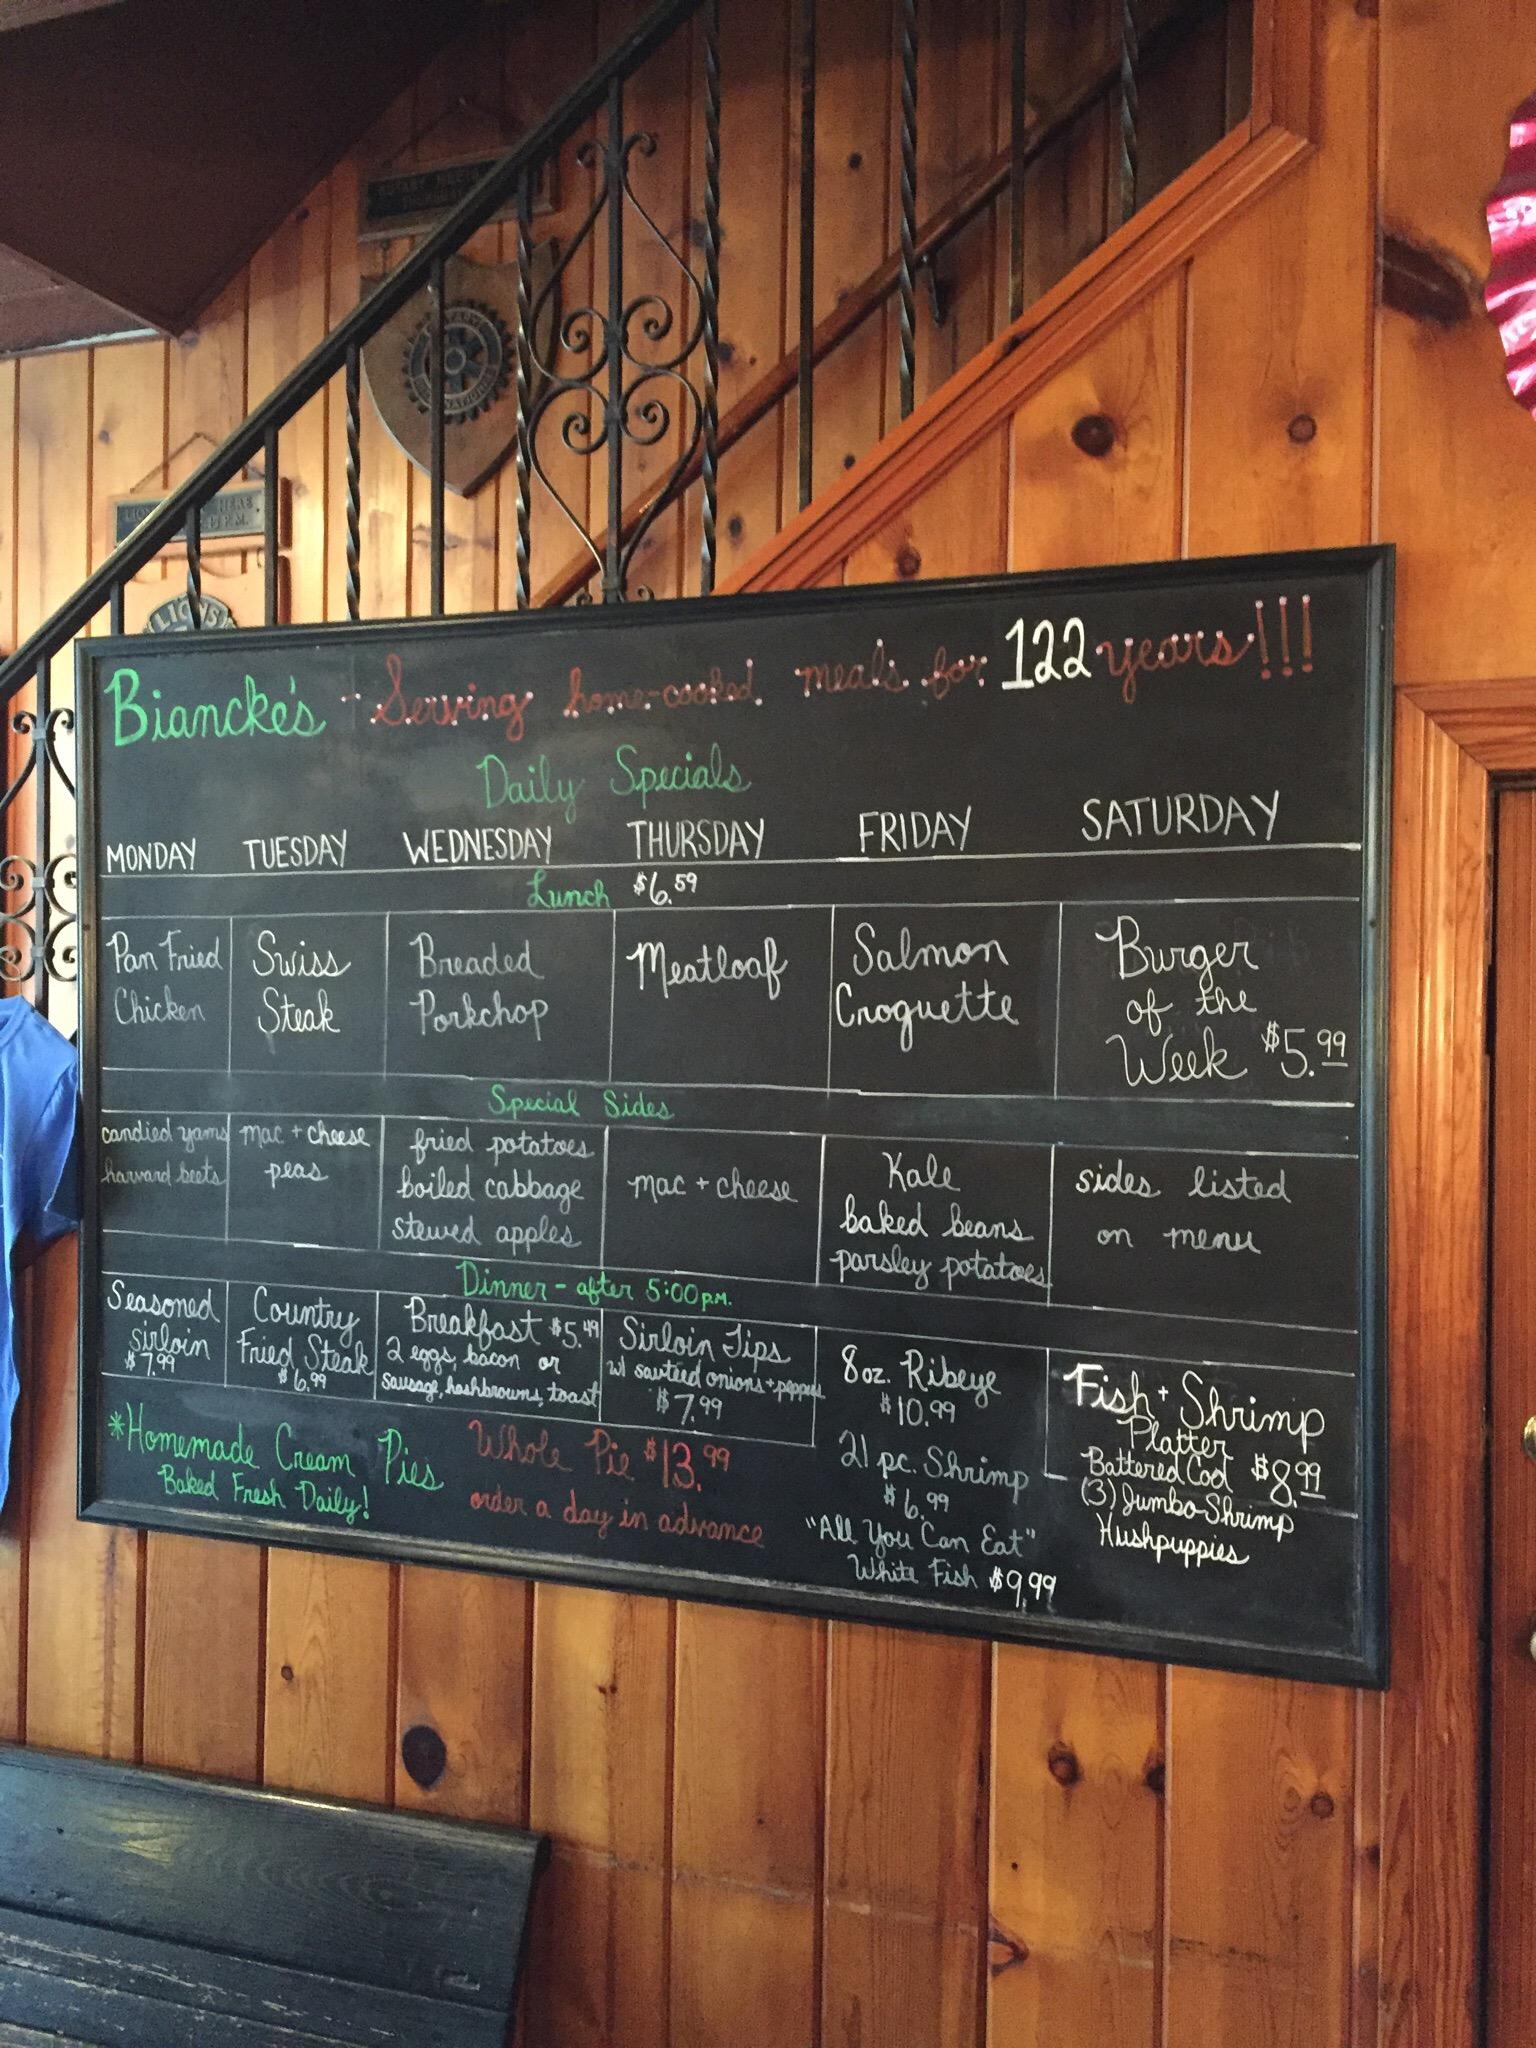 ROTARY MEETS
ROTARY
INTERNATIONAL
HERE
P.M.
LIONS
Biancke's - Serving home-cooked meals for 122 years!!!
Daily Specials
MONDAY TUESDAY WEDNESDAY THURSDAY FRIDAY SATURDAY
Lunch $6.59
Pan Fried
Chicken
Swiss
Steak
Breaded
Porkchop
Meatloaf
Salmon
Croquette
Burger
of the
Week $5.99
Special Sides
candied yams
harvard beets
mac + cheese
peas
fried potatoes
boiled cabbage
stewed apples
mac + cheese
Kale
baked beans
parsley potatoes
sides listed
on menu
Dinner - after 5:00 P.M.
Seasoned
sirloin
$7.99
Country
Fried Steak
$6.99
Breakfast $5.49
2 eggs, bacon or
sausage, hashbrowns, toast
Sirloin Tips
w/ sauteed onions + peppers
$7.99
8 oz. Ribeye
$10.99
21 pc. Shrimp
$6.99
"All You Can Eat"
White Fish $9.99
Fish + Shrimp
Platter
Battered Cod $8.99
(3) Jumbo Shrimp
Hushpuppies
*Homemade Cream Pies
Baked Fresh Daily!
Whole Pie $13.99
order a day in advance